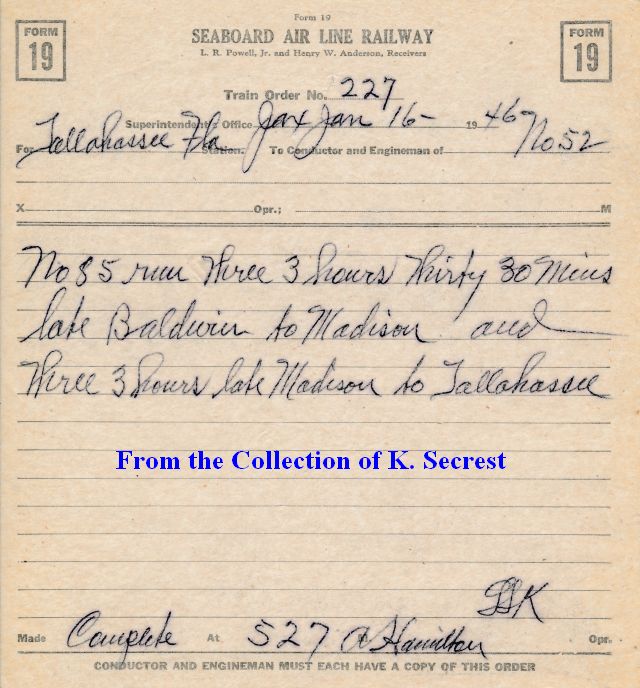 Form 19
FORM 19
SEABOARD AIR LINE RAILWAY
FORM 19
L. R. Powell, Jr. and Henry W. Anderson, Receivers
Train Order No. 227
Superintendent's Office Jax Jan 16- 1946
For Tallahassee Fla Station. To Conductor and Engineman of No 52
X Opr.; M
No 85 run Three 3 hours Thirty 30 Mins
late Baldwin to Madison and
Three 3 hours late Madison to Tallahassee
From the Collection of K. Secrest
Made Complete At 527 Hamilton Opr.
CONDUCTOR AND ENGINEMAN MUST EACH HAVE A COPY OF THIS ORDER